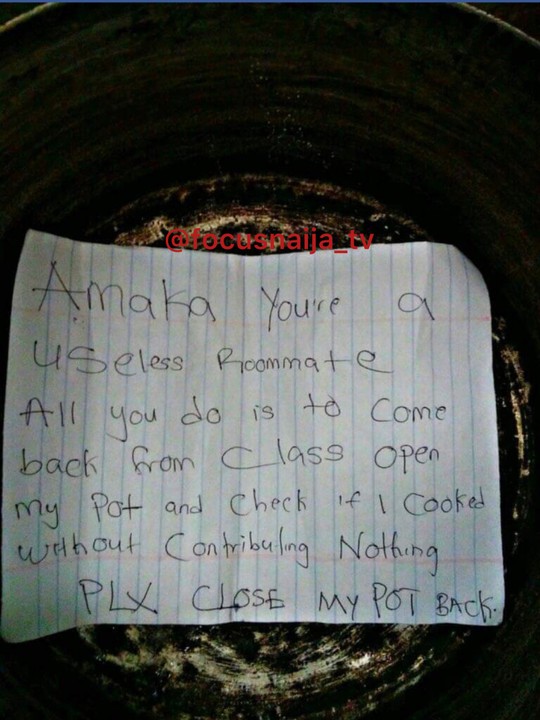 @focusnaija_tv
Amaka You're a
useless Roommate
All you do is to Come
back from Class open
my Pot and Check if I Cooked
without Contributing Nothing
PLX CLOSE MY POT BACK.